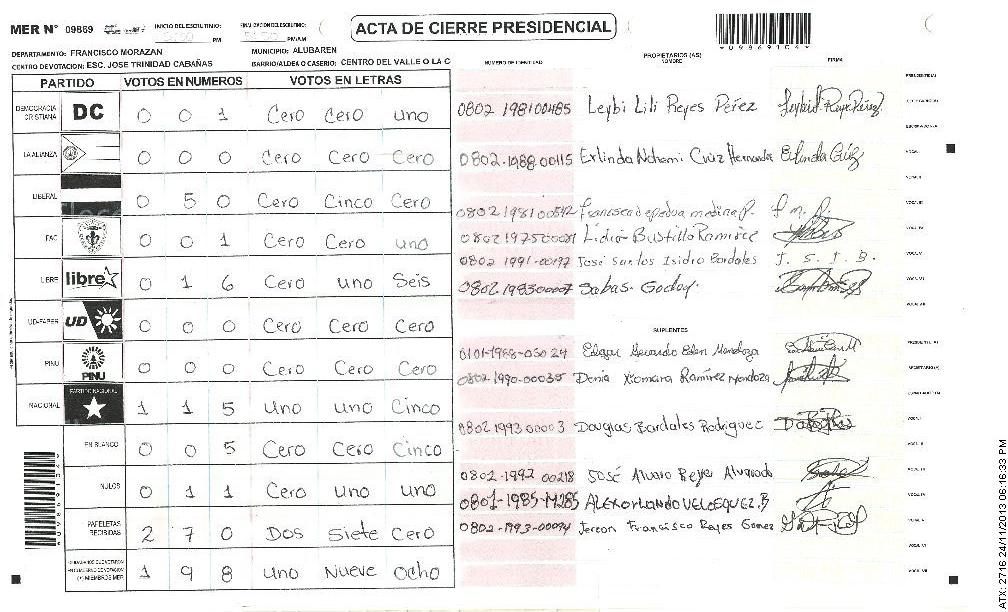 MER N° 09869 INICIO DEL ESCRUTINIO: PM FINALIZACION DEL ESCRUTINIO: PM/AM
ACTA DE CIERRE PRESIDENCIAL
DEPARTAMENTO: FRANCISCO MORAZAN MUNICIPIO: ALUBAREN
CENTRO DE VOTACION: ESC. JOSE TRINIDAD CABAÑAS BARRIO/ALDEA O CASERIO: CENTRO DEL VALLE O LA C
PARTIDO VOTOS EN NUMEROS VOTOS EN LETRAS
DEMOCRACIA CRISTIANA DC 0 0 1 Cero Cero uno
LA ALIANZA 0 0 0 Cero Cero Cero
LIBERAL 0 5 0 Cero Cinco Cero
PAC 0 0 1 Cero Cero uno
LIBRE libre 0 1 6 Cero uno Seis
UD-FAPER UD 0 0 0 Cero Cero Cero
PINU PINU 0 0 0 Cero Cero Cero
NACIONAL PARTIDO NACIONAL 1 1 5 Uno uno Cinco
EN BLANCO 0 0 5 Cero Cero Cinco
NULOS 0 1 1 Cero uno uno
PAPELETAS RECIBIDAS 2 7 0 Dos Siete Cero
(+) MIEMBROS MER 1 9 8 uno Nueve Ocho
NUMERO DE IDENTIDAD PROPIETARIOS (AS) NOMBRE FIRMA
0802 1981 00485 Leybi Lili Reyes Pérez
0802-1988-00115 Erlinda Nohemi Cruz Hernandez Erlinda Cruz
0802 1981 00542 Francisca depadua medina P. F m. P.
Lidia Bustillo Ramirez
0802 1991-00197 José Santos Isidro Bardales J. S. I. B.
0802 1983 00007 Sabas Godoy
SUPLENTES
0101-1988-03024 Edgar Gerardo Eden Mendoza
0802-1990-00035 Denia Xiomara Ramírez Mendoza
0802 1993 00003 Douglas Bardales Rodriguez
0802-1992 00218 José Alvaro Reyes Alvarado
0801-1985-14285 ALEX ORLANDO VELASQUEZ.B
0802-1993-00094 Jerson Francisco Reyes Gomez
09869104
ATX: 2716 24/11/2013 06:16:33 PM